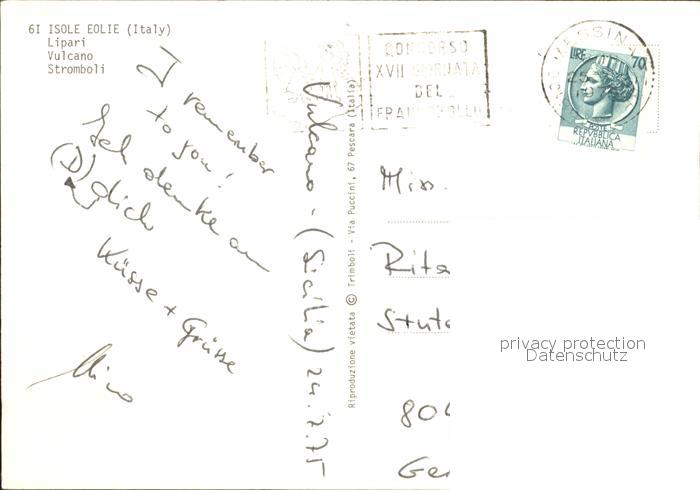 6I ISOLE EOLIE (Italy)
Lipari
Vulcano
Stromboli
I remember
to you!
Ich denke an
(D) dich
Küsse + Grüsse
Nino
Vulcano - (Sicilia) 24.7.75
Riproduzione vietata © Trimboli - Via Puccini, 67 Pescara (Italia)
CONCORSO
XVII GIORNATA
DEL
FRANCOBOLLO
MESSINA
LIRE 70
POSTE
REPVBBLICA
ITALIANA
Miss.
Rita
Stut
80
Ge
privacy protection
Datenschutz